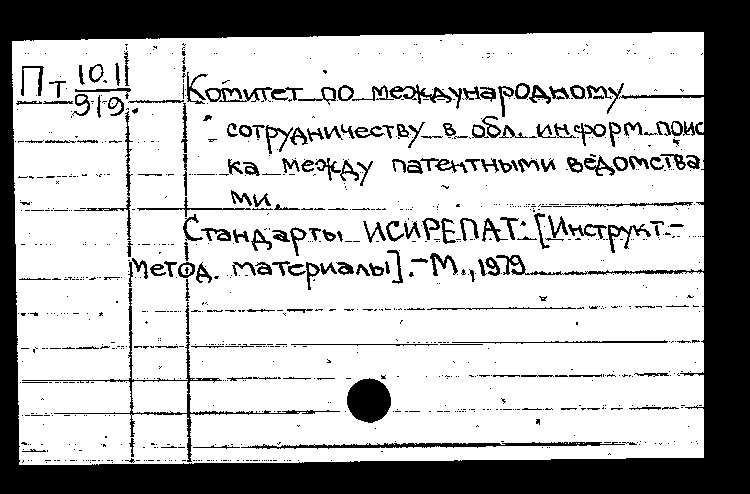 Пт 10.11
919.
Комитет по международному
сотрудничеству в обл. информ. поис
ка между патентными ведомства
ми.
Стандарты ИСИРЕПАТ: [Инструкт.-
метод. материалы].-М., 1979